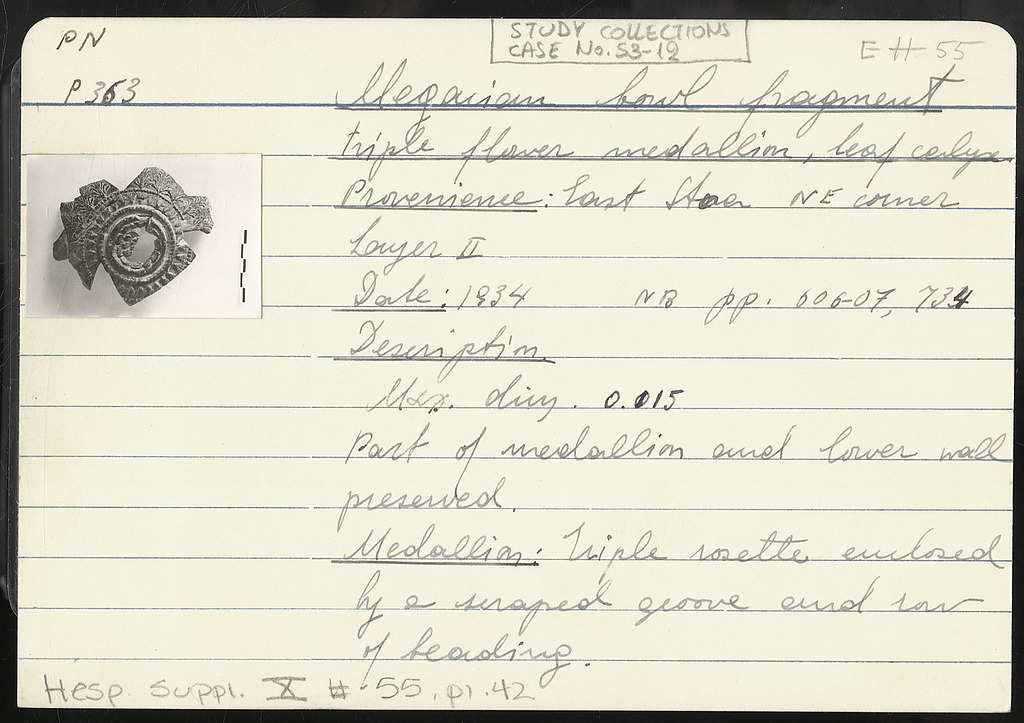 PN
STUDY COLLECTIONS
CASE No. 53-12
E # 55
P 363
Megarian bowl fragment
triple flower medallion, leaf calyx.
Provenience: East Stoa NE corner
Layer II
Date: 1934 NB pp. 606-07, 734
Description.
Max. dim. 0.015
Part of medallion and lower wall
preserved.
Medallion: Triple rosette enclosed
by a scraped groove and row
of beading.
Hesp. Suppl. X # 55, pl. 42